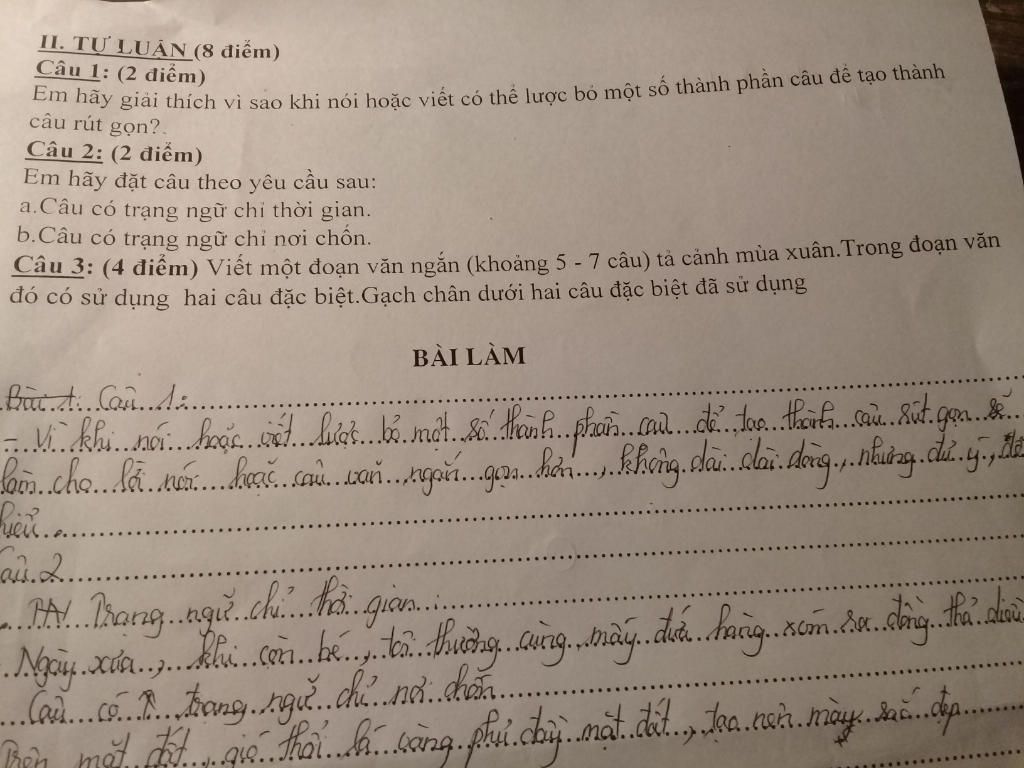 II. TỰ LUẬN (8 điểm)
Câu 1: (2 điểm)
Em hãy giải thích vì sao khi nói hoặc viết có thể lược bỏ một số thành phần câu để tạo thành
câu rút gọn?.
Câu 2: (2 điểm)
Em hãy đặt câu theo yêu cầu sau:
a.Câu có trạng ngữ chỉ thời gian.
b.Câu có trạng ngữ chỉ nơi chốn.
Câu 3: (4 điểm) Viết một đoạn văn ngắn (khoảng 5 - 7 câu) tả cảnh mùa xuân.Trong đoạn văn
đó có sử dụng hai câu đặc biệt.Gạch chân dưới hai câu đặc biệt đã sử dụng
BÀI LÀM
Câu 1:
- Vì khi nói hoặc viết lược bỏ một số thành phần câu để tạo thành câu rút gọn sẽ
làm cho lời nói hoặc câu văn ngắn gọn hơn, không dài dòng, nhưng đủ ý, dễ
hiểu.
Câu 2
Trạng ngữ chỉ thời gian:
Ngày xưa, khi còn bé, tôi thường cùng mấy đứa hàng xóm ra đồng thả diều
Câu có trạng ngữ chỉ nơi chốn
Trên mặt đất, gió thổi lá vàng phủ đầy mặt đất, tạo nên màu sắc đẹp